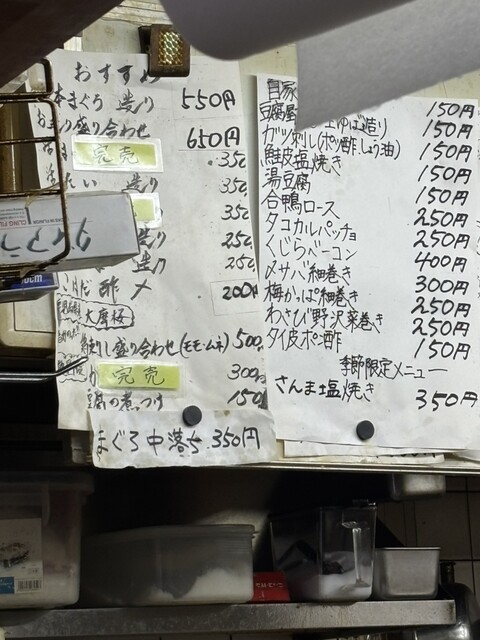 おすすめ
本まぐろ 造り 550円
盛り合わせ 650円
完売 350
たい 造り 350
350
造り 250
造り 250
酢〆 200円
大摩桜
刺し盛り合わせ(モモ・ムネ) 500
完売 300
豆腐の煮つけ 150
まぐろ中落ち 350円
自家
豆腐 150円
生ゆば造り 150円
ガツ刺し(ポン酢,しょう油) 150円
鮭皮塩焼き 150円
湯豆腐 150円
合鴨ロース 250円
タコカルパッチョ 250円
くじらベーコン 400円
〆サバ細巻き 300円
梅かっぱ細巻き 250円
わさび野沢菜巻き 250円
タイ皮ポン酢 150円
季節限定メニュー
さんま塩焼き 350円